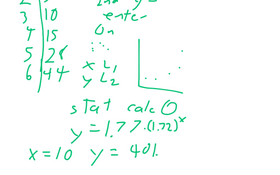 3 10 enter
4 15 On
5 28
6 44 x L1
y L2
stat calc 0
y = 1.77·(1.72)^x
x = 10 y = 401.